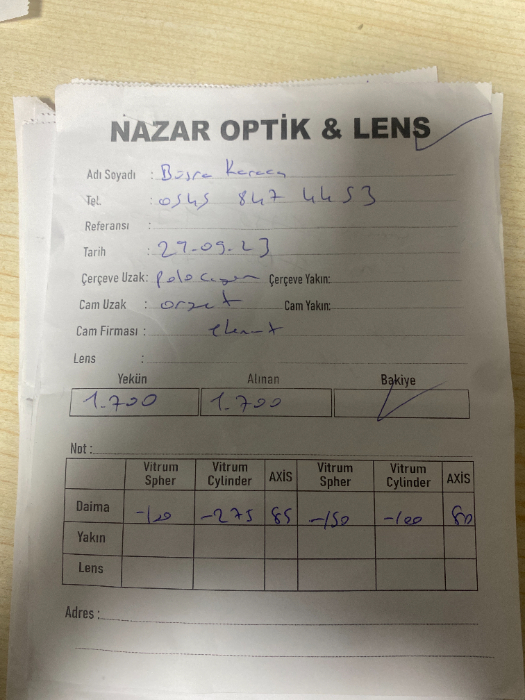 NAZAR OPTİK & LENS
Adı Soyadı : Büşra
Tel. : 0545 847 44 53
Referansı :
Tarih : 27.09.23
Çerçeve Uzak: Çerçeve Yakın:
Cam Uzak : Cam Yakın:
Cam Firması :
Lens :
Yekün Alınan Bakiye
1.700 1.700
Not :
Vitrum Spher Vitrum Cylinder AXİS Vitrum Spher Vitrum Cylinder AXİS
Daima -100 -275 85 -150 -100 80
Yakın
Lens
Adres :